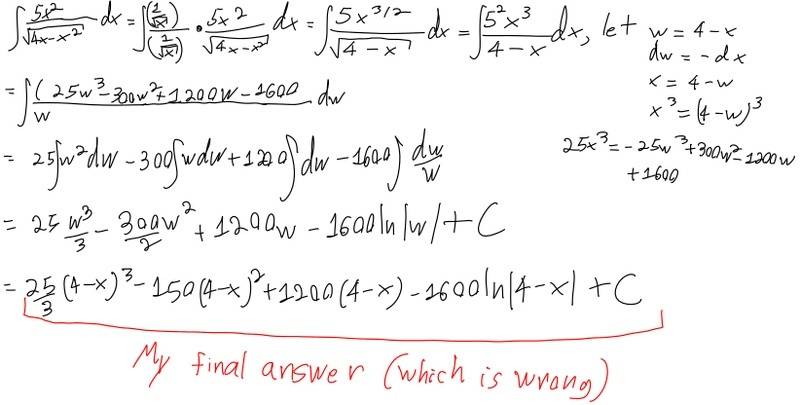 ∫ 5x²/√(4x-x²) dx = ∫ (1/√x)/(1/√x) · 5x²/√(4x-x²) dx = ∫ 5x^(3/2)/√(4-x) dx = ∫ 5²x³/(4-x) dx, let w = 4-x
dw = -dx
x = 4-w
x³ = (4-w)³
25x³ = -25w³+300w²-1200w
+1600
= ∫ (25w³-300w²+1200w-1600/w dw
= 25∫w²dw - 300∫wdw+1200∫dw -1600∫ dw/w
= 25 w³/3 - 300w²/2 + 1200w - 1600ln|w| + C
= 25/3 (4-x)³ - 150(4-x)² + 1200(4-x) - 1600ln|4-x| + C
My final answer (which is wrong)